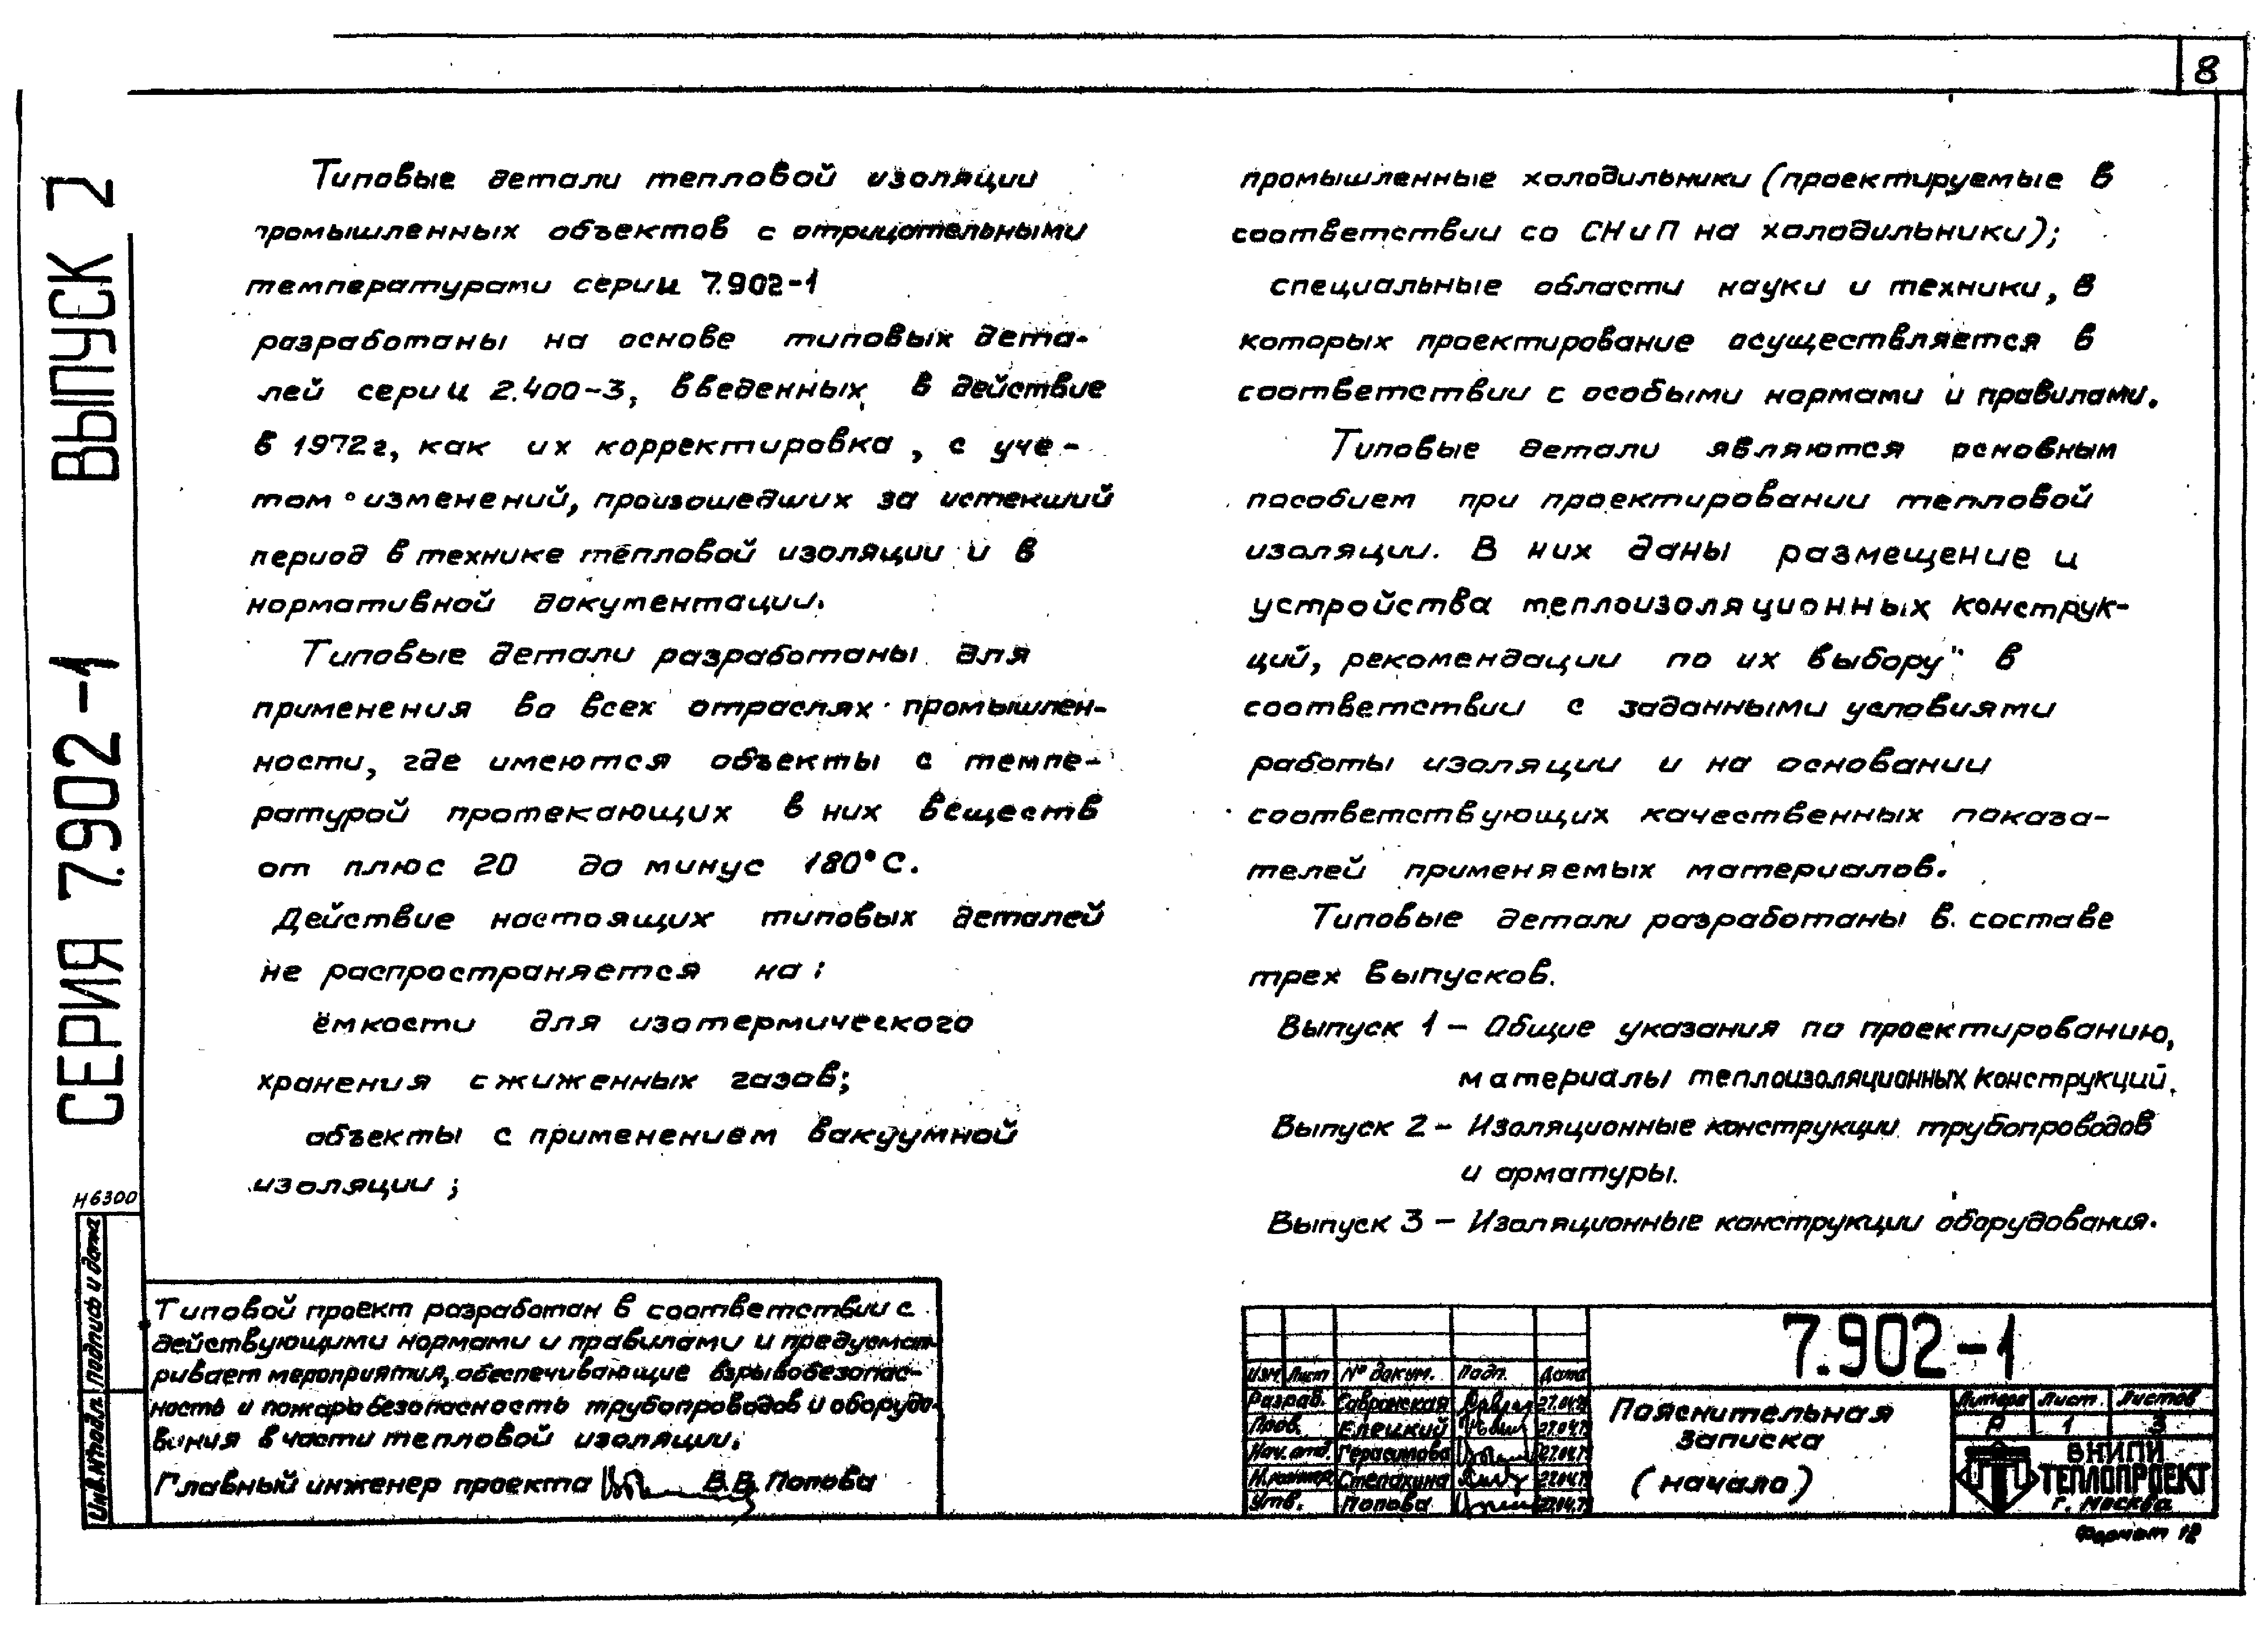 8
СЕРИЯ 7.902-1 ВЫПУСК 2
Типовые детали тепловой изоляции
промышленных объектов с отрицательными
температурами серии 7.902-1
разработаны на основе типовых дета-
лей серии 2.400-3, введенных в действие
в 1972г, как их корректировка, с уче-
том изменений, произошедших за истекший
период в технике тепловой изоляции и в
нормативной документации.
Типовые детали разработаны для
применения во всех отраслях промышлен-
ности, где имеются объекты с темпе-
ратурой протекающих в них веществ
от плюс 20 до минус 180°С.
Действие настоящих типовых деталей
не распространяется на:
ёмкости для изотермического
хранения сжиженных газов;
объекты с применением вакуумной
изоляции;
промышленные холодильники (проектируемые в
соответствии со СНиП на холодильники);
специальные области науки и техники, в
которых проектирование осуществляется в
соответствии с особыми нормами и правилами.
Типовые детали являются основным
пособием при проектировании тепловой
изоляции. В них даны размещение и
устройства теплоизоляционных конструк-
ций, рекомендации по их выбору в
соответствии с заданными условиями
работы изоляции и на основании
соответствующих качественных показа-
телей применяемых материалов.
Типовые детали разработаны в составе
трех выпусков.
Выпуск 1 – Общие указания по проектированию,
материалы теплоизоляционных конструкций.
Выпуск 2 – Изоляционные конструкции трубопроводов
и арматуры.
Выпуск 3 – Изоляционные конструкции оборудования.
Н6300
Инв.№ подл. Подпись и дата
Типовой проект разработан в соответствии с
действующими нормами и правилами и предусмат-
ривает мероприятия, обеспечивающие взрывобезопас-
ность и пожаробезопасность трубопроводов и оборудо-
вания в части тепловой изоляции.
Главный инженер проекта В.В. Попова
7.902-1
Изм Лист № докум. Подп. Дата
Разраб. Савранская
Пров. Елецкий
Нач. отд. Герасимова
Н.контр. Степахина
Утв. Попова
Пояснительная
записка
(начало)
Литера Лист Листов
Р 1 3
ВНИПИ
ТЕПЛОПРОЕКТ
г. Москва
Формат 12